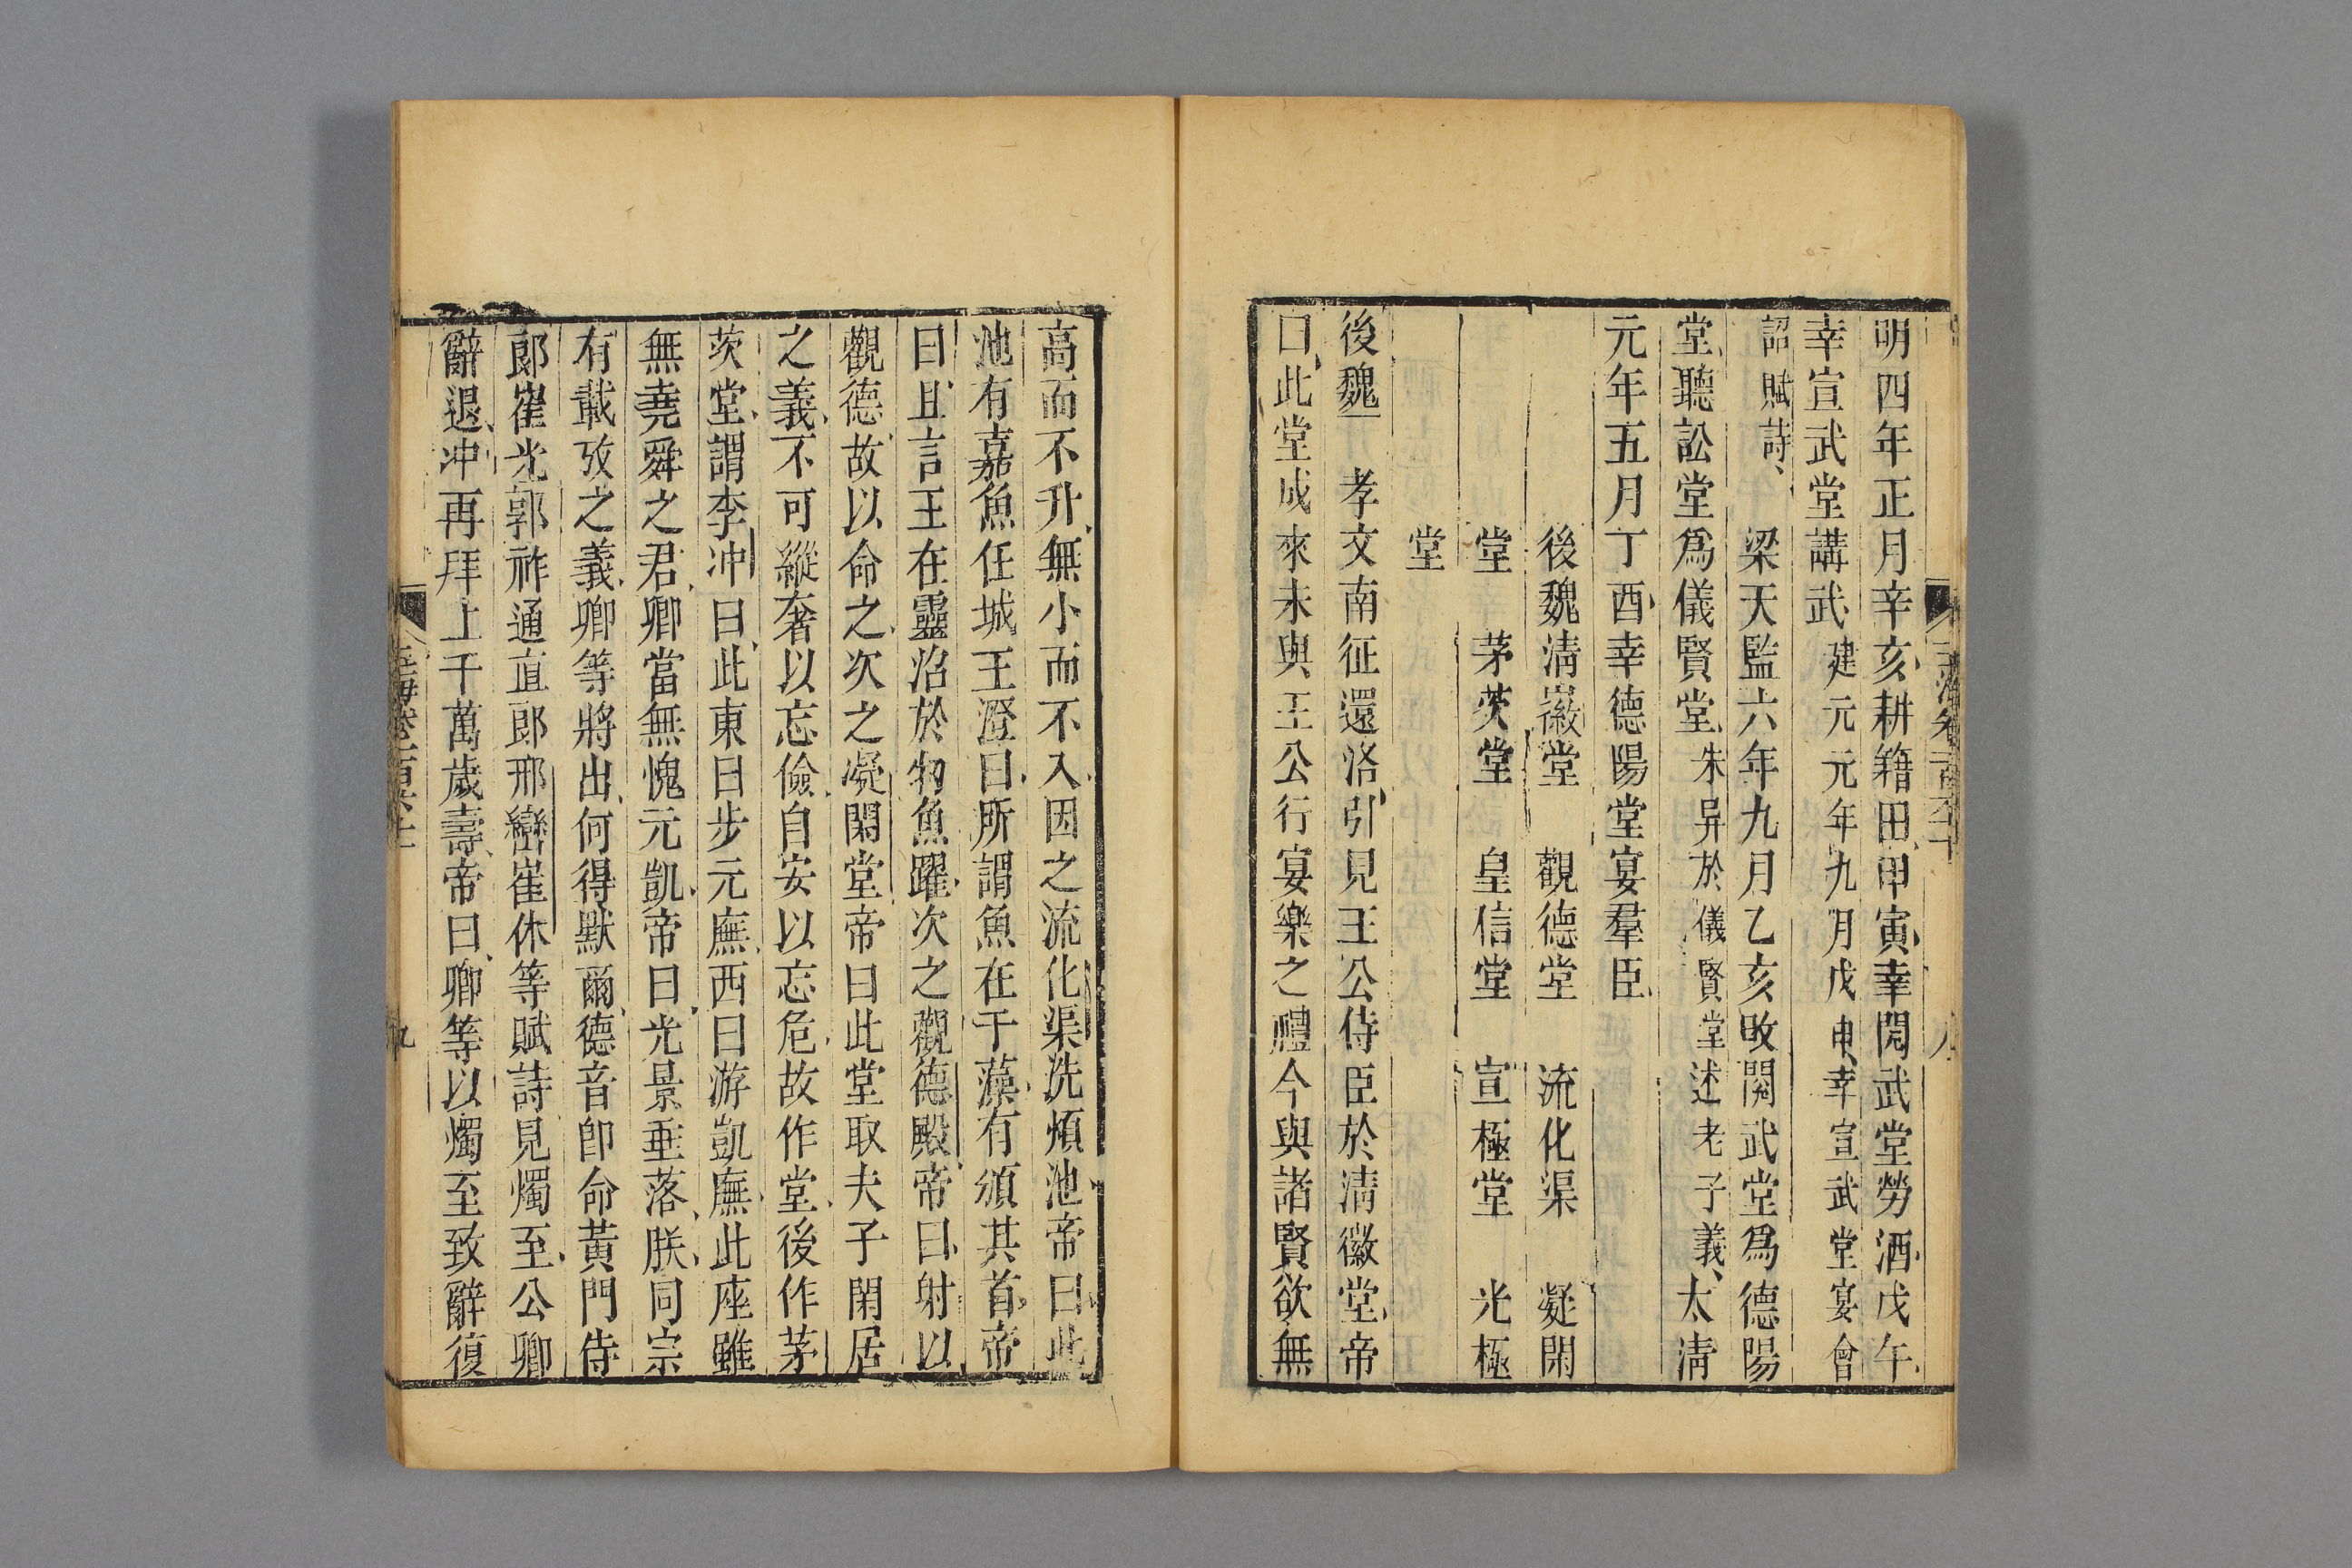 明四年正月辛亥耕籍田甲寅幸閱武堂勞酒戊午
幸宣武堂講武建元元年九月戊申幸宣武堂宴會
詔賦詩梁天監六年九月乙亥改閱武堂爲德陽
堂聽訟堂爲儀賢堂朱异於儀賢堂述老子義太淸
元年五月丁酉幸德陽堂宴羣臣
後魏淸徽堂 觀德堂 流化渠 凝閑
堂 茅茨堂 皇信堂 宣極堂 光極
堂
後魏 孝文南征還洛引見王公侍臣於淸徽堂帝
曰此堂成來未與王公行宴樂之禮今與諸賢欲無
高而不升無小而不入因之流化渠洗煩池帝曰此
池有嘉魚任城王澄曰所謂魚在于藻有頒其首帝
曰且言王在靈沼於牣魚躍次之觀德殿帝曰射以
觀德故以命之次之凝閑堂帝曰此堂取夫子閑居
之義不可縱奢以忘儉自安以忘危故作堂後作茅
茨堂謂李冲曰此東曰步元廡西曰游凱廡此座雖
無堯舜之君卿當無愧元凱帝曰光景垂落朕同宗
有載攷之義卿等將出何得默爾德音卽命黃門侍
郎崔光郭祚通直郎邢巒崔休等賦詩見燭至公卿
辭退冲再拜上千萬歲壽帝曰卿等以燭至致辭復
玉海卷一百六十一
九